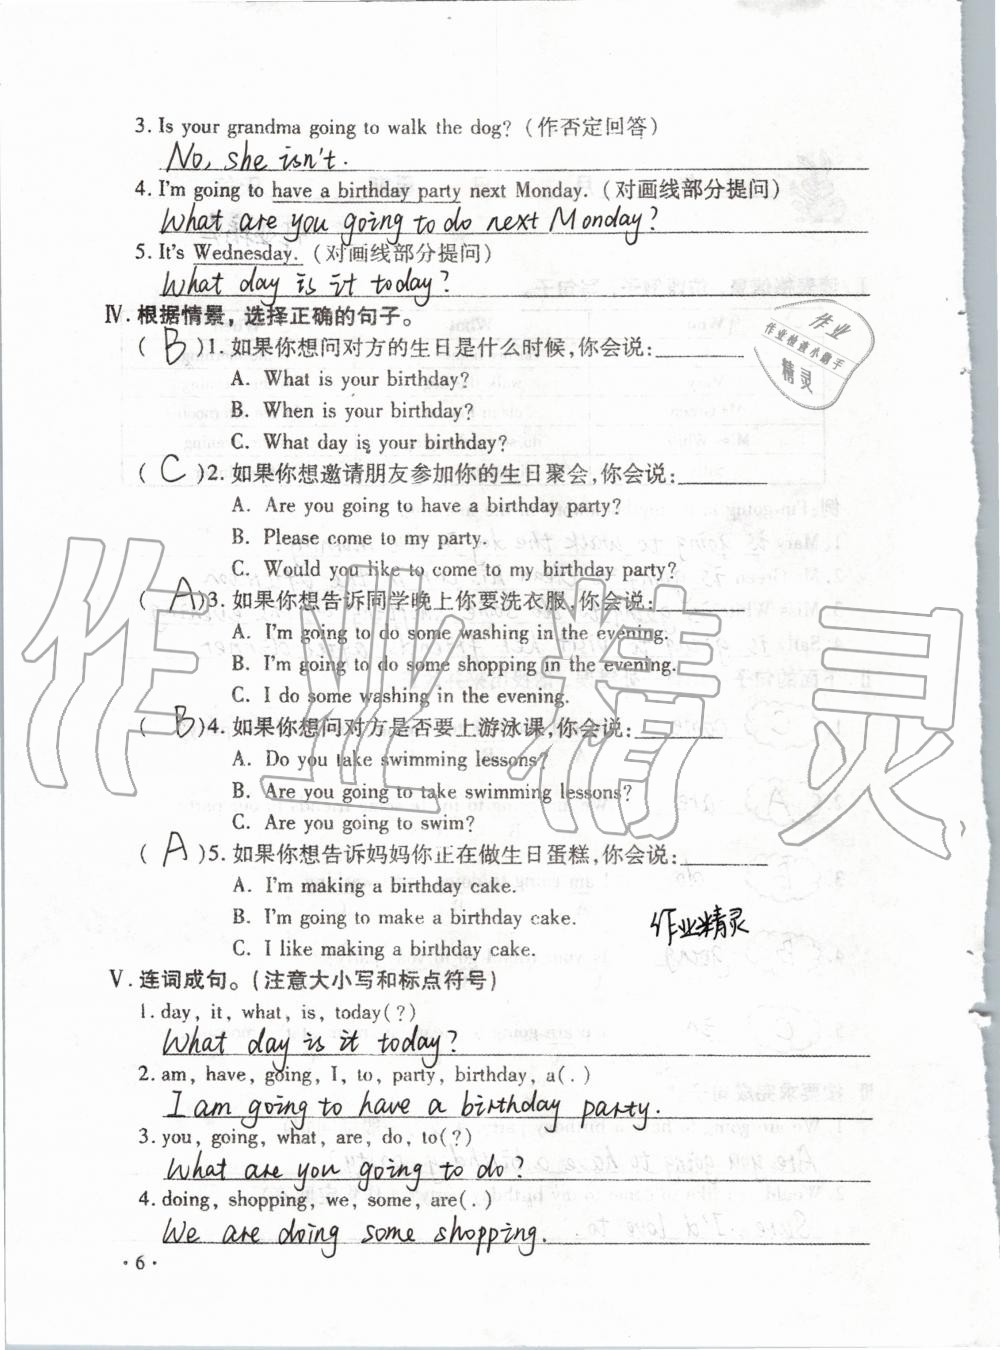 3. Is your grandma going to walk the dog? (作否定回答)
No, she isn't.
4. I'm going to have a birthday party next Monday. (对画线部分提问)
What are you going to do next Monday?
5. It's Wednesday. (对画线部分提问)
What day is it today?
Ⅳ. 根据情景，选择正确的句子。
( B )1. 如果你想问对方的生日是什么时候,你会说:
A. What is your birthday?
B. When is your birthday?
C. What day is your birthday?
( C )2. 如果你想邀请朋友参加你的生日聚会,你会说:
A. Are you going to have a birthday party?
B. Please come to my party.
C. Would you like to come to my birthday party?
( A )3. 如果你想告诉同学晚上你要洗衣服,你会说:
A. I'm going to do some washing in the evening.
B. I'm going to do some shopping in the evening.
C. I do some washing in the evening.
( B )4. 如果你想问对方是否要上游泳课,你会说:
A. Do you take swimming lessons?
B. Are you going to take swimming lessons?
C. Are you going to swim?
( A )5. 如果你想告诉妈妈你正在做生日蛋糕,你会说:
A. I'm making a birthday cake.
B. I'm going to make a birthday cake.
C. I like making a birthday cake.
作业精灵
Ⅴ. 连词成句。(注意大小写和标点符号)
1. day, it, what, is, today(?)
What day is it today?
2. am, have, going, I, to, party, birthday, a(.)
I am going to have a birthday party.
3. you, going, what, are, do, to(?)
What are you going to do?
4. doing, shopping, we, some, are(.)
We are doing some shopping.
· 6 ·
作业
作业检查小助手
精灵
作业精灵